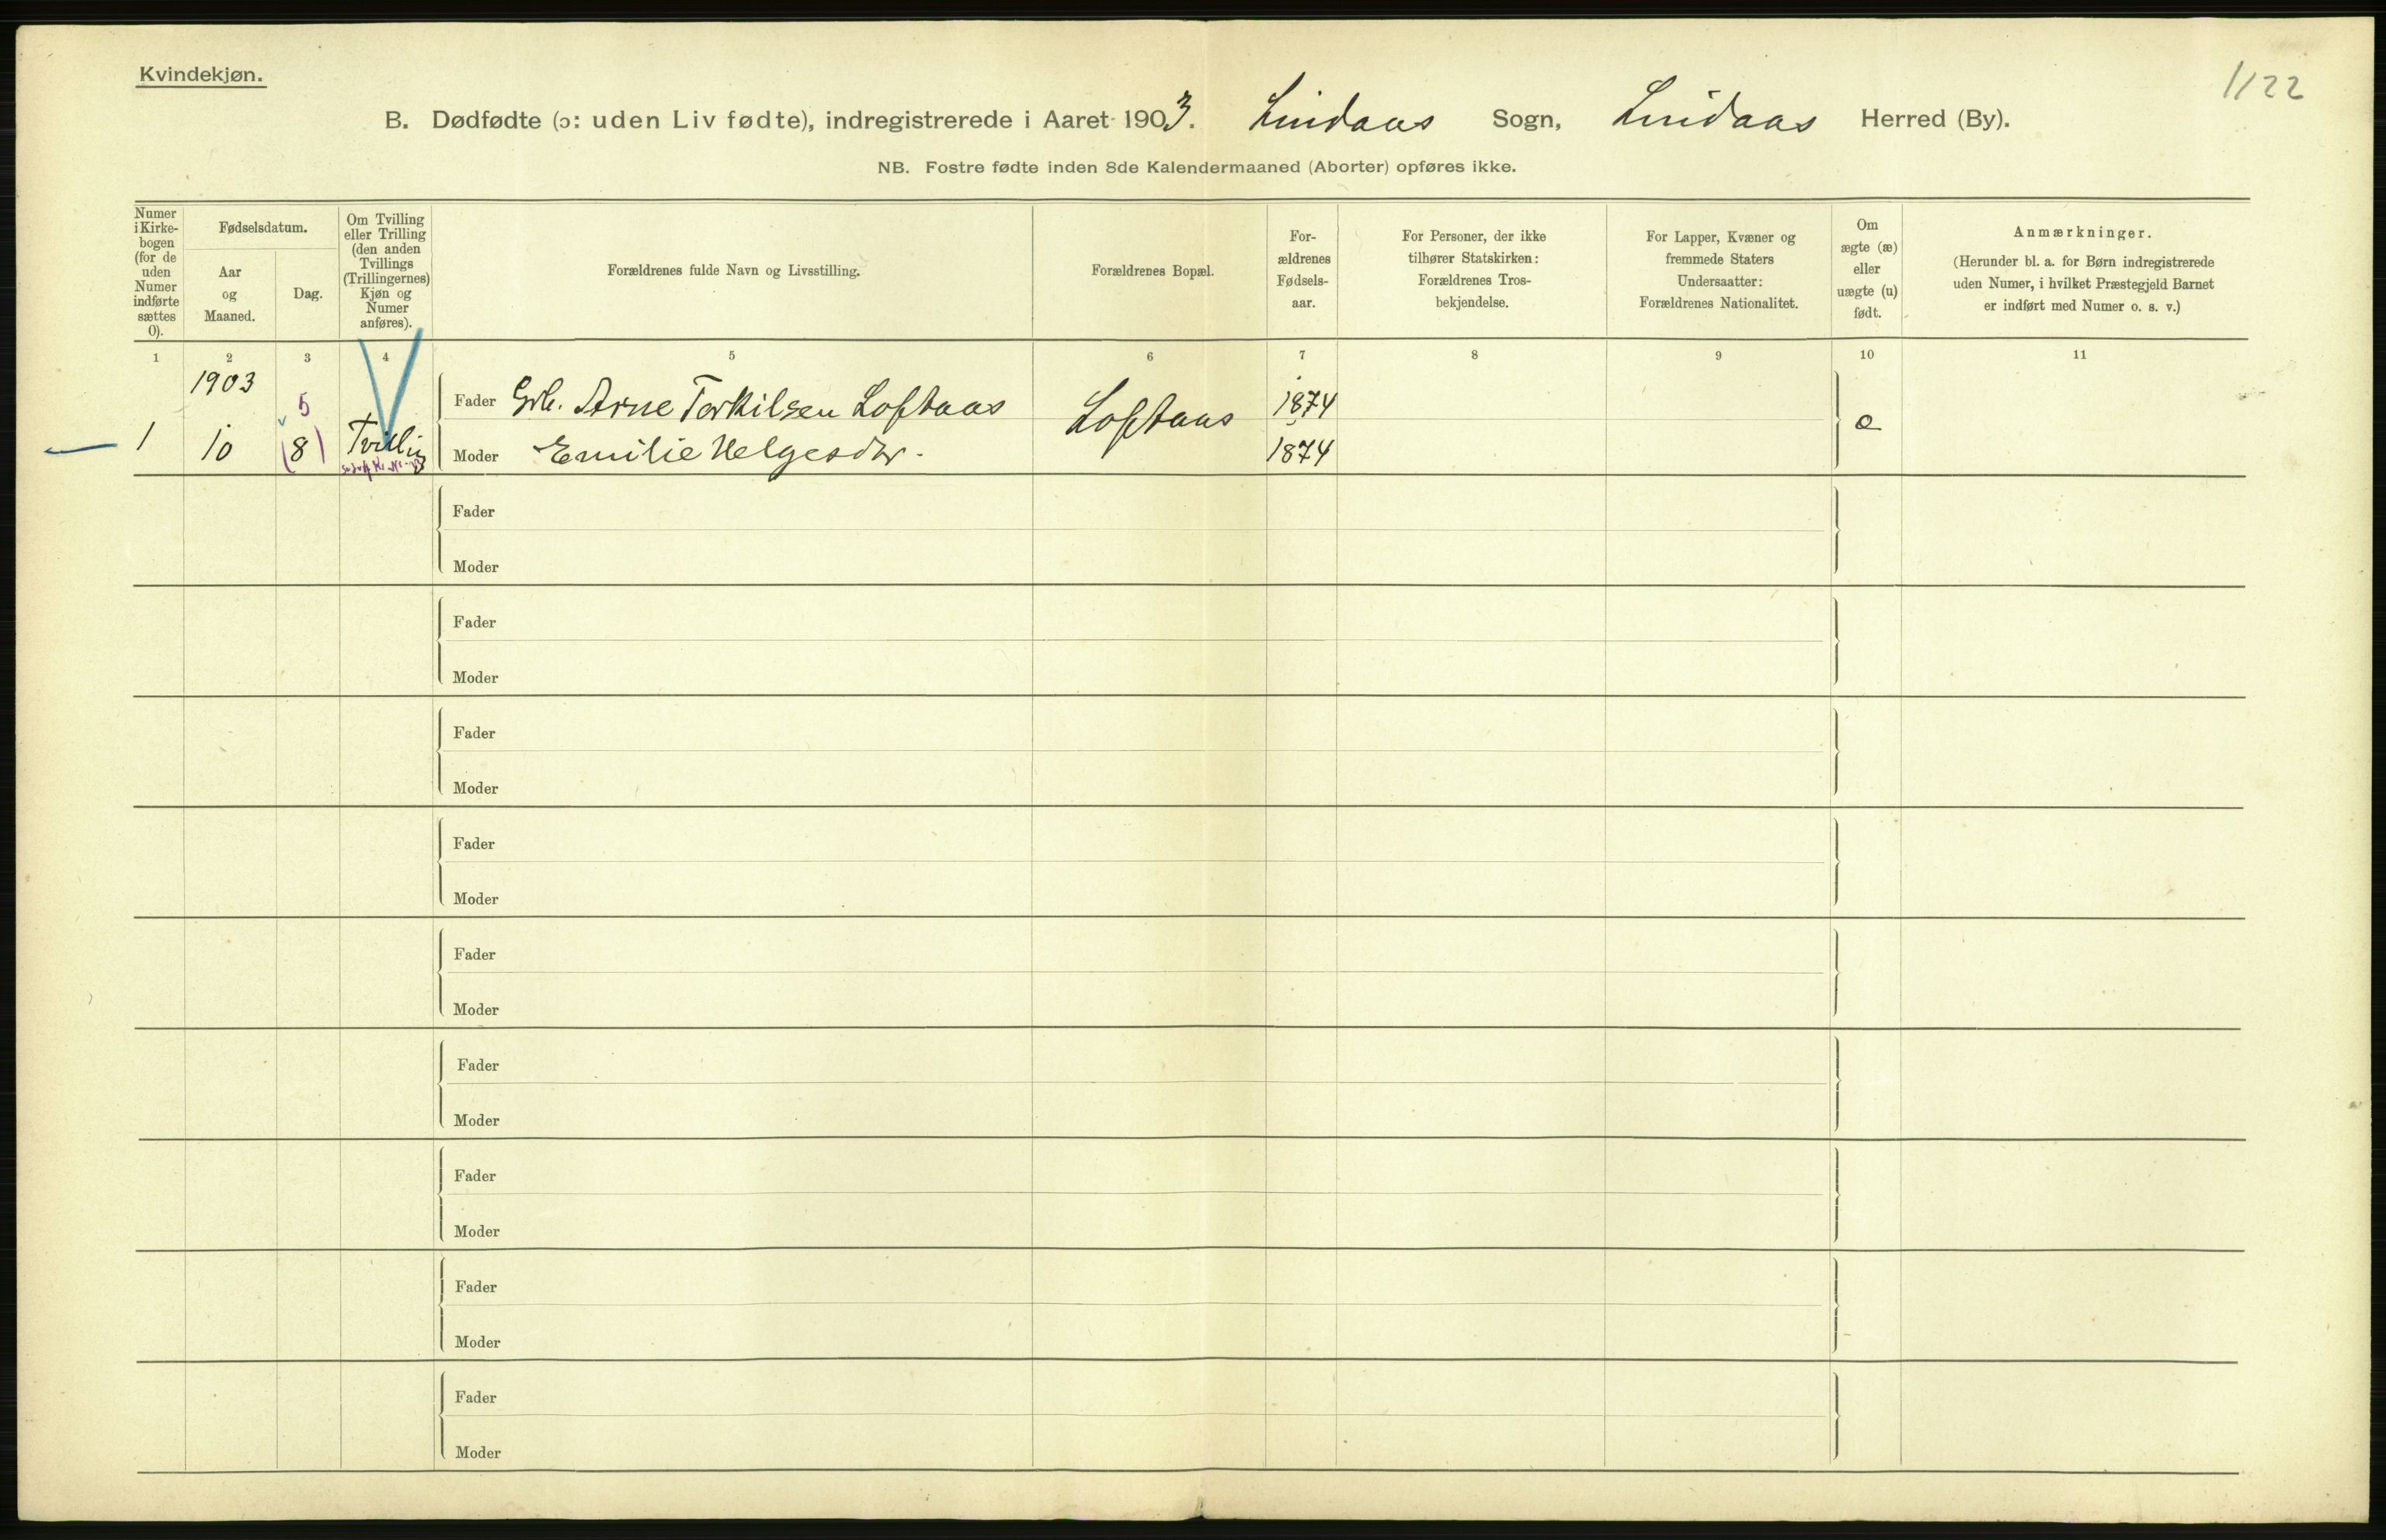 Kvindekjøn.
1122
B. Dødfødte (ɔ: uden Liv fødte), indregistrerede i Aaret 1903. Lindaas Sogn, Lindaas Herred (By).
NB. Fostre fødte inden 8de Kalendermaaned (Aborter) opføres ikke.
Numer
i Kirke-
bogen
(for de
uden
Numer
indførte
sættes
0).
Fødselsdatum.
Aar
og
Maaned.
Dag.
Om Tvilling
eller Trilling
(den anden
Tvillings
(Trillingernes)
Kjøn og
Numer
anføres).
Forældrenes fulde Navn og Livsstilling.
Forældrenes Bopæl.
For-
ældrenes
Fødsels-
aar.
For Personer, der ikke
tilhører Statskirken:
Forældrenes Tros-
bekjendelse.
For Lapper, Kvæner og
fremmede Staters
Undersaatter:
Forældrenes Nationalitet.
Om
ægte (æ)
eller
uægte (u)
født.
Anmærkninger.
(Herunder bl. a. for Børn indregistrerede
uden Numer, i hvilket Præstegjeld Barnet
er indført med Numer o. s. v.)
1 2 3 4 5 6 7 8 9 10 11
1903
5
1 10 (8) Tvilling
Fader Grb. Arne Torkilsen Loftaas Loftaas 1874
Moder Emilie Helgesdtr. 1874
æ
Fader
Moder
Fader
Moder
Fader
Moder
Fader
Moder
Fader
Moder
Fader
Moder
Fader
Moder
Fader
Moder
Fader
Moder